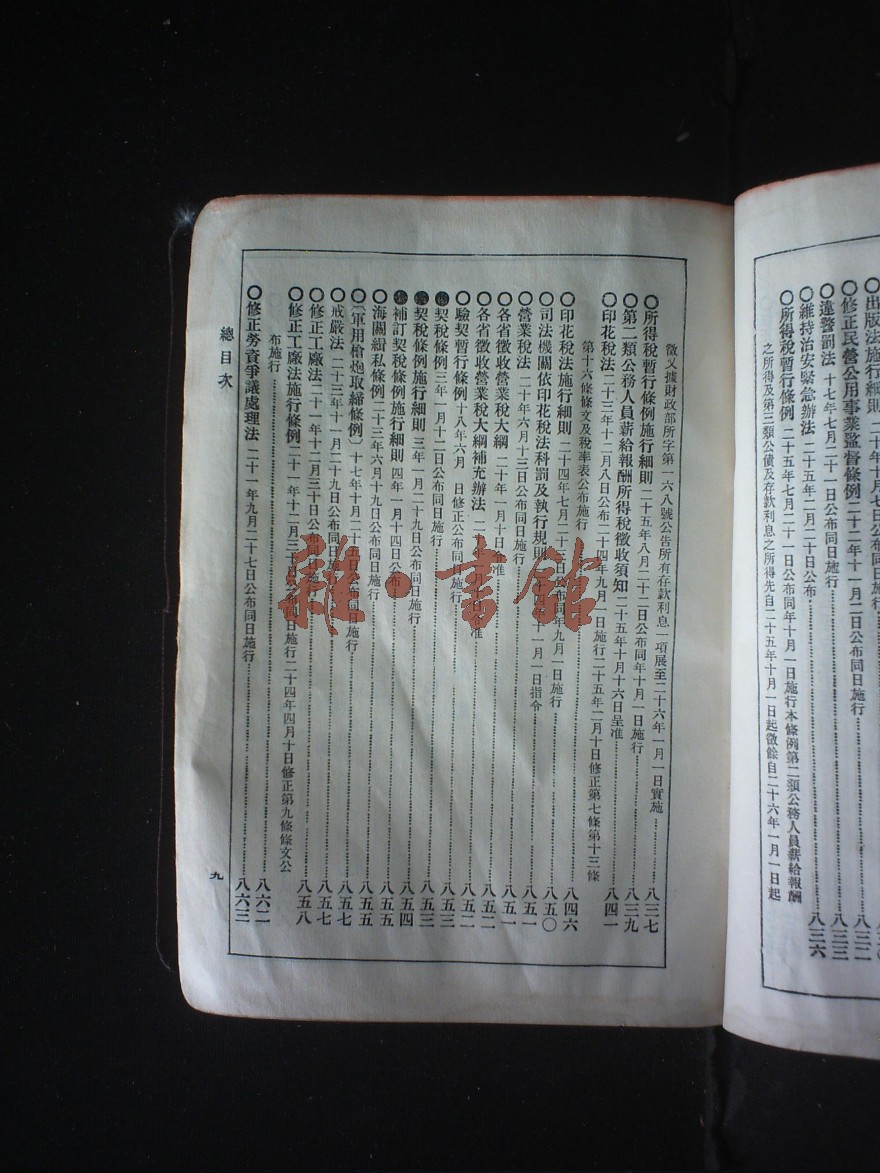 出版法施行細則
修正民營公用事業監督條例 二十二年十一月二十日公布同日施行……八三三
違警罰法 十七年七月二十一日公布同日施行
維持治安緊急辦法 二十五年二月二十日公布
所得稅暫行條例 二十五年七月二十一日公布同年十月一日施行本條例第二類公務人員薪給報酬
之所得及第三類公債及存款利息之所得先自二十五年十月一日起徵餘自二十六年一月一日起……八三六
徵又據財政部所字第一六八號公告所有存款利息一項展至二十六年一月一日實施……八三七
〇所得稅暫行條例施行細則 二十五年八月二十二日公布同年十月一日施行……八三九
〇第二類公務人員薪給報酬所得稅徵收須知 二十五年十月十六日呈准……八四一
〇印花稅法 二十三年十二月八日公布二十四年九月一日施行二十五年二月十日修正第七條第十三條
第十六條條文及稅率表公布施行
〇印花稅法施行細則 二十四年七月二十三日公布同年九月一日施行……八四六
〇司法機關依印花稅法科罰及執行規則 十一月一日指令……八五〇
〇營業稅法 二十年六月十三日公布同日施行……八五一
〇各省徵收營業稅大綱 二十年一月十日……八五一
〇各省徵收營業稅大綱補充辦法……八五二
〇驗契暫行條例 十八年六月 日修正公布同日施行……八五二
契稅條例 三年一月十一日公布同日施行……八五三
契稅條例施行細則 三年一月二十九日公布同日施行……八五三
補訂契稅條例施行細則 四年一月十四日公布……八五四
〇海關緝私條例 二十三年六月十九日公布同日施行……八五五
〇〔軍用槍炮取締條例〕 十七年十月二十五日公布同日施行……八五七
〇戒嚴法 二十三年十一月二十九日公布同日施行……八五七
〇修正工廠法 二十一年十二月三十日公布同日施行……八五八
〇修正工廠法施行條例 二十一年十二月三十日公布同日施行二十四年四月十日修正第九條條文公
布施行……八六二
〇修正勞資爭議處理法 二十一年九月二十七日公布同日施行……八六三
總目次
九
雜·書館